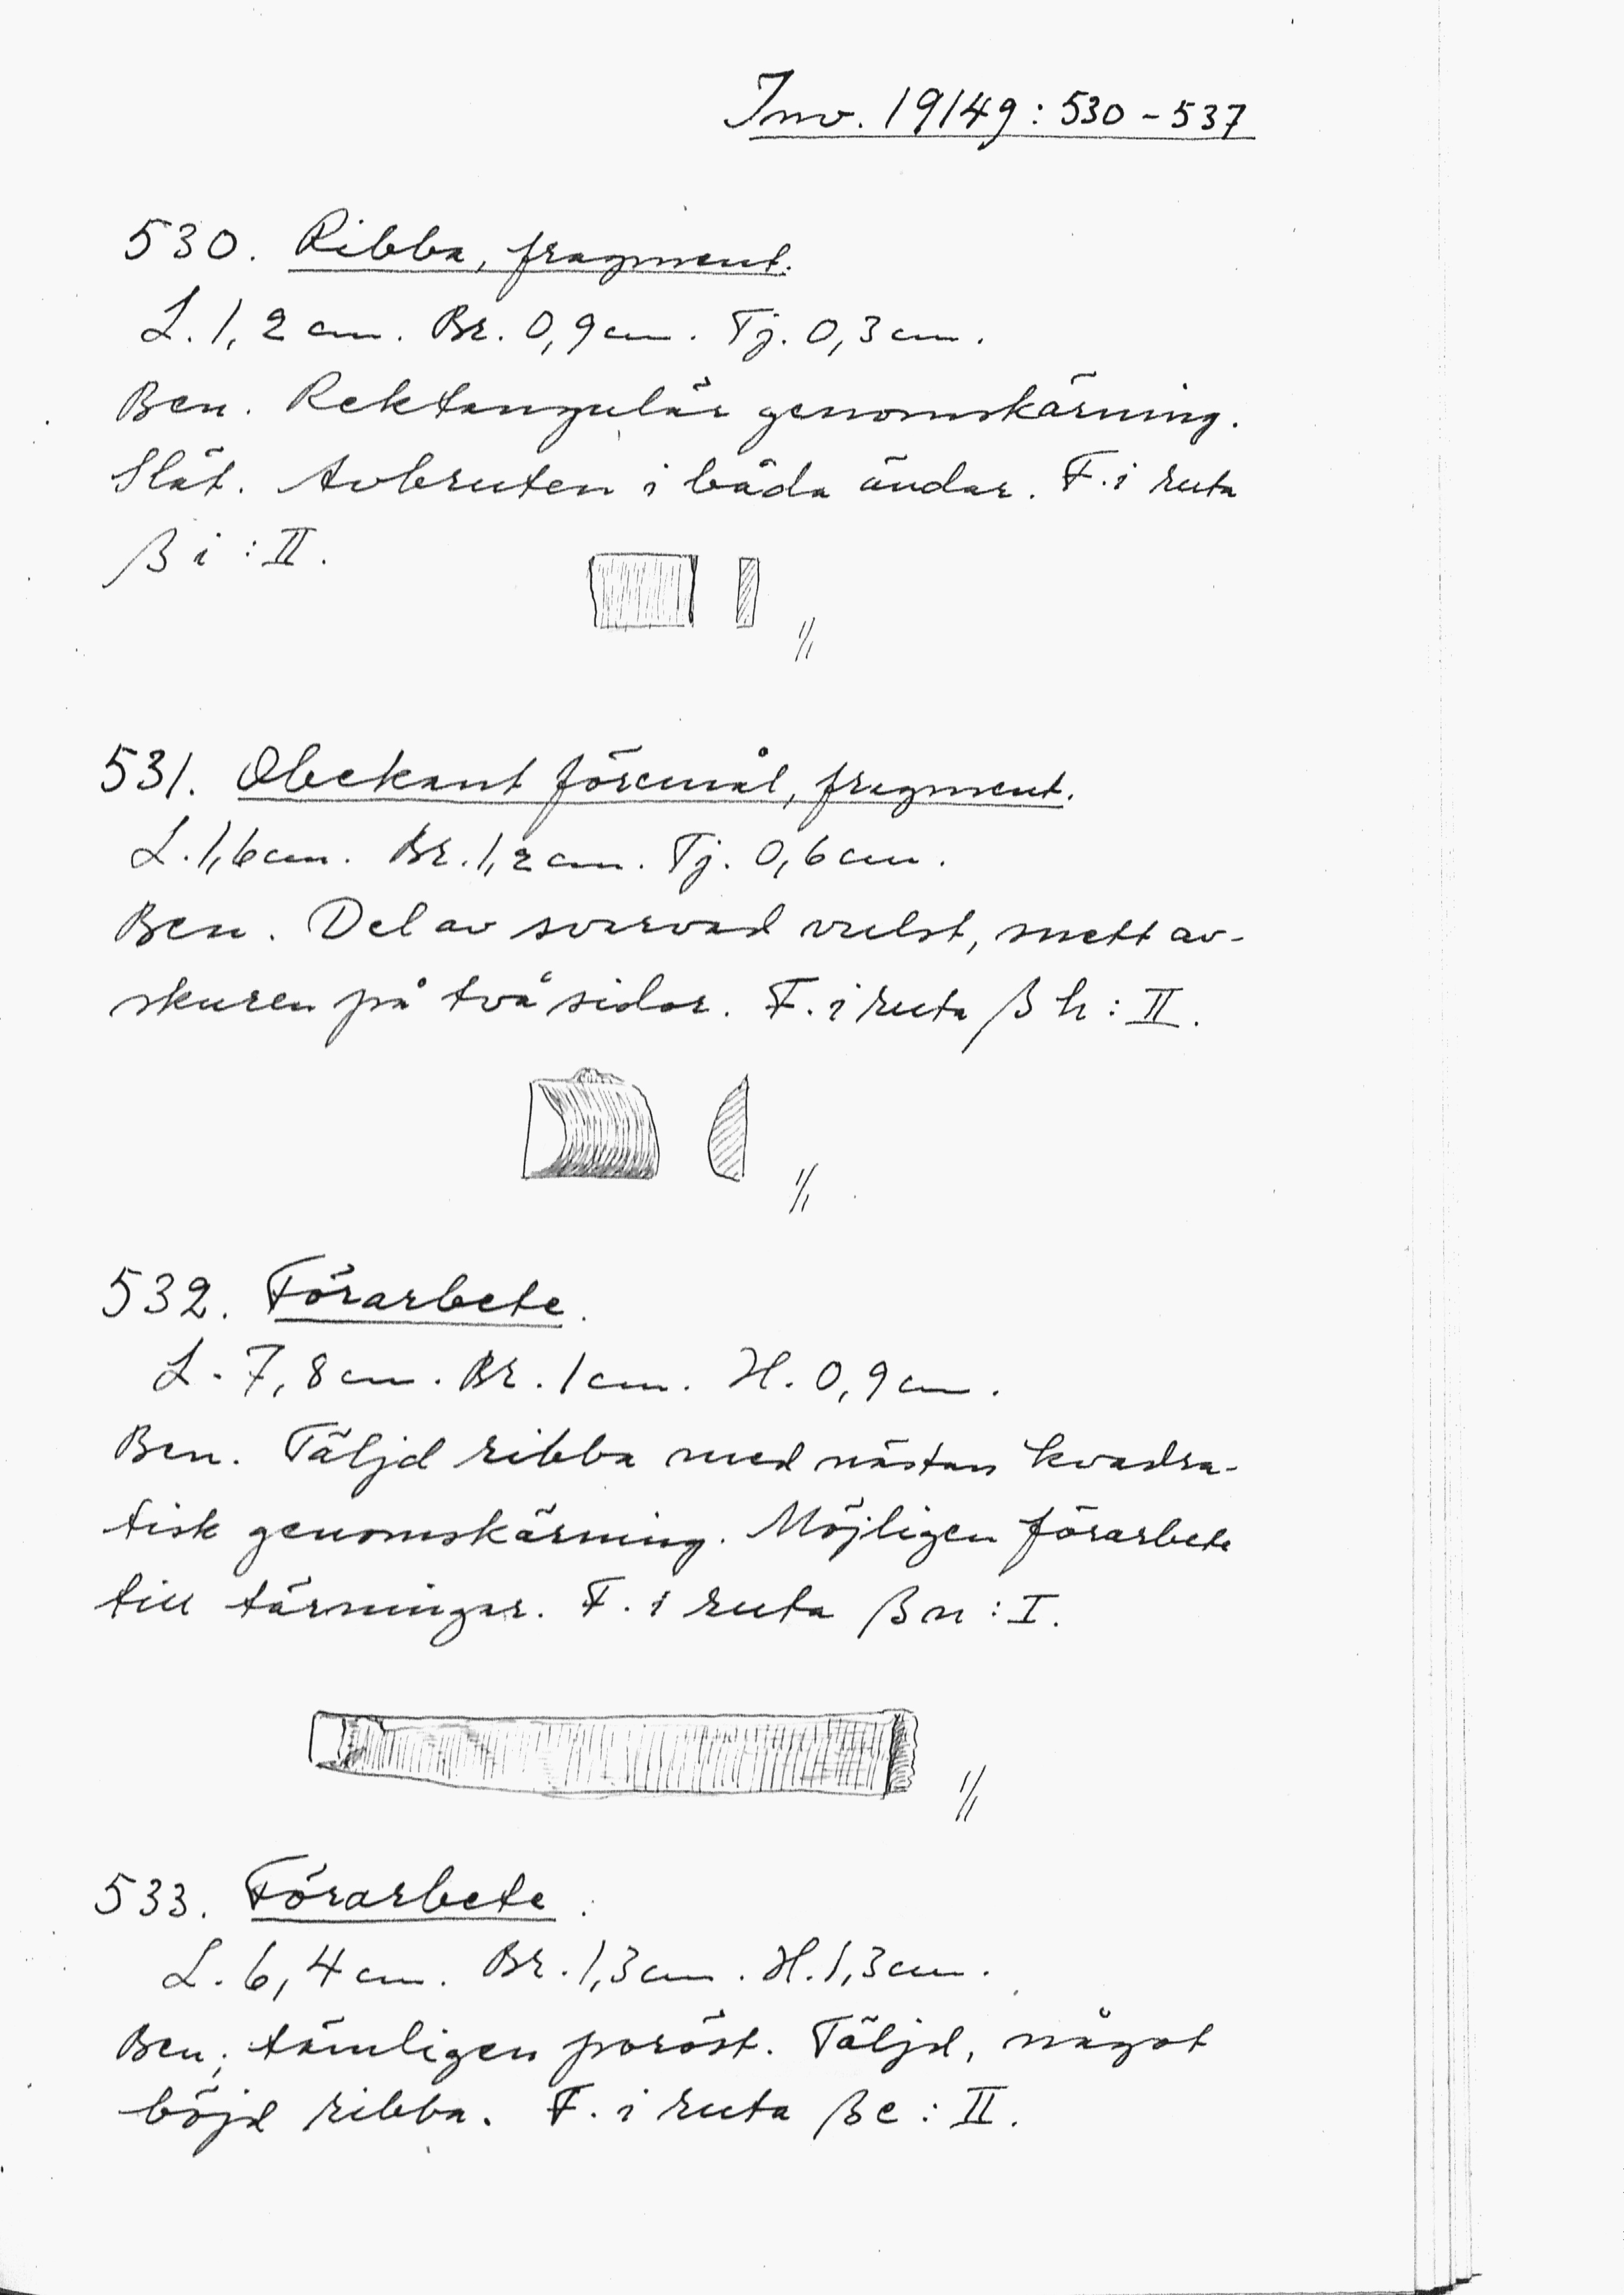 Inv. 19149: 530-537
530. Ribba, fragment.
L. 1,2 cm. Br. 0,9 cm. Tj. 0,3 cm.
Ben. Rektangulär genomskärning.
Slät. Avbruten i båda ändar. F. i ruta
β i : II.
1/1
531. Obekant föremål, fragment.
L. 1,6 cm. Br. 1,2 cm. Tj. 0,6 cm.
Ben. Del av svarvad vulst, snett av-
skuren på två sidor. F. i ruta β h : II.
1/1
532. Förarbete.
L. 7,8 cm. Br. 1 cm. H. 0,9 cm.
Ben. Täljd ribba med nästan kvadra-
tisk genomskärning. Möjligen förarbete
till tärningar. F. i ruta β n : I.
1/1
533. Förarbete.
L. 6,4 cm. Br. 1,3 cm. H. 1,3 cm.
Ben; tämligen poröst. Täljd, något
böjd ribba. F. i ruta β e : II.